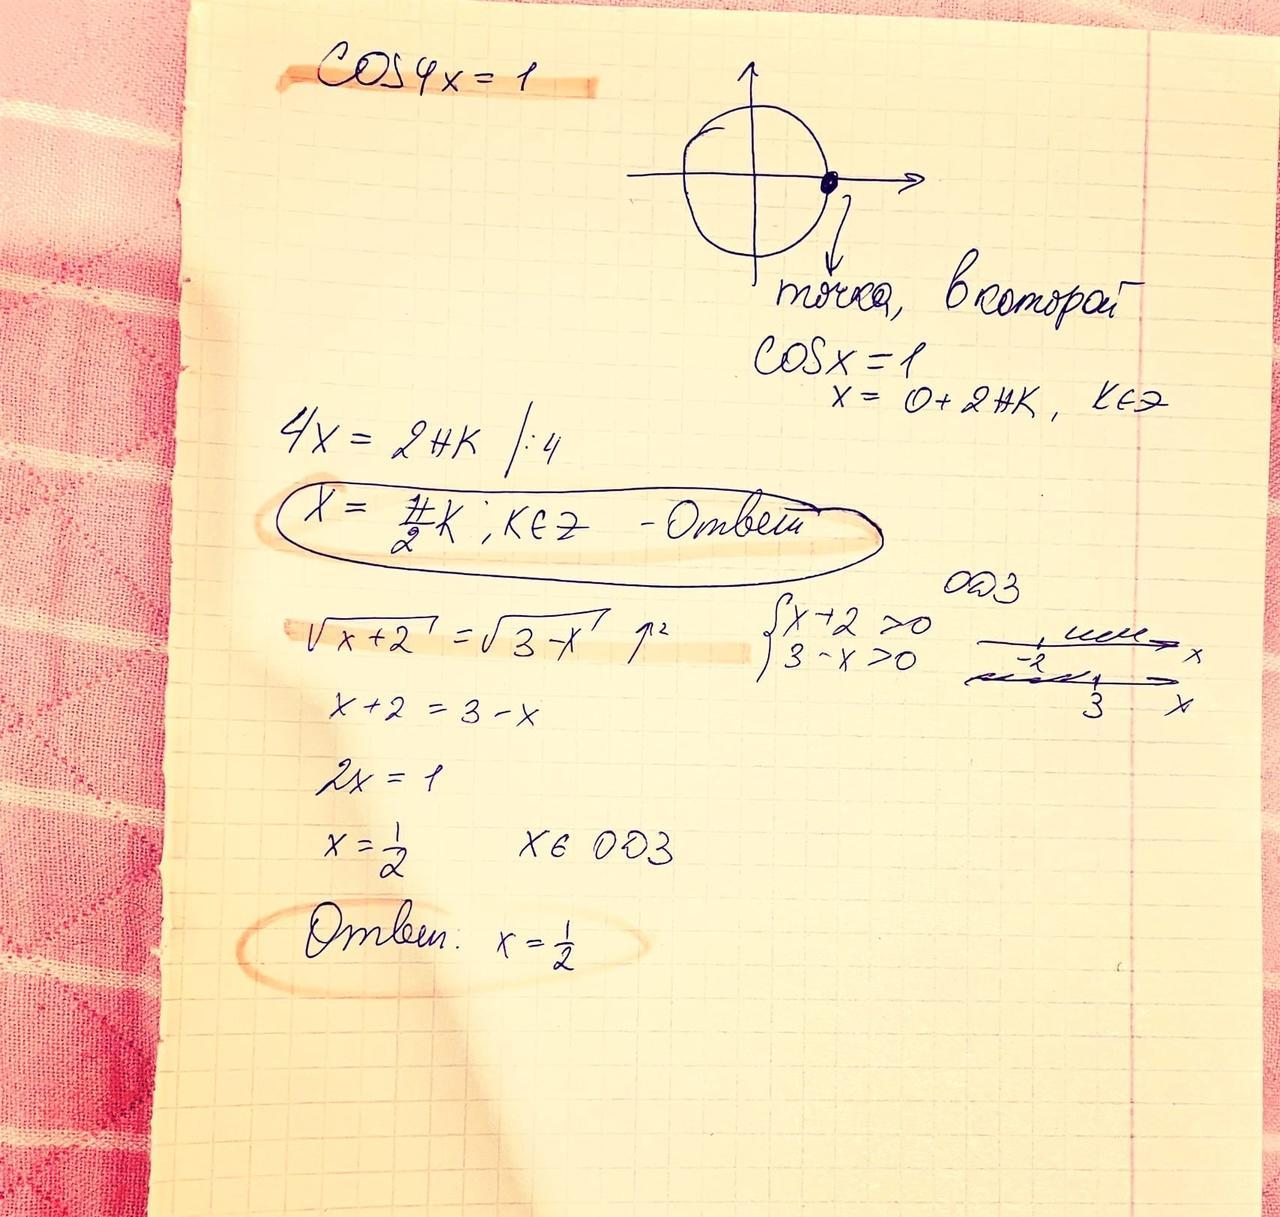 cos4x = 1
точка, в которой
cosx = 1
x = 0 + 2πk, k∈Z
4x = 2πk /:4
x = π/2 k, k∈Z - Ответ
ОДЗ
√x+2 = √3-x ↑²
{x+2 >0
3-x>0
-2 x
3 x
x+2 = 3-x
2x = 1
x = 1/2 x ∈ ОДЗ
Ответ: x = 1/2